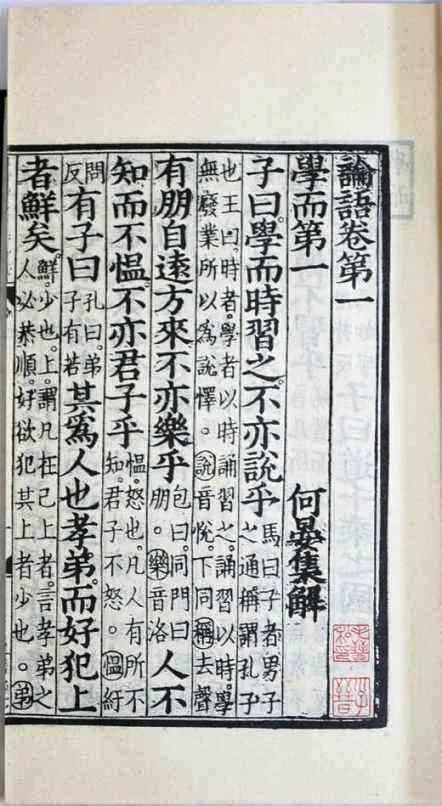 論語卷第一
學而第一 何晏集解
子曰。學而時習之。不亦說乎 馬曰子者男子之通稱謂孔子
也王曰。時者。學者以時誦習之。誦習以時。學無廢業所以爲說懌。說音悅。下同稱去聲
有朋自遠方來不亦樂乎 包曰。同門曰朋。樂音洛 人不
知而不慍。不亦君子乎 慍。怒也。凡人有所不知。君子不怒。慍紆
問反 有子曰 孔曰。弟子有若 其爲人也孝弟。而好犯上
者鮮矣。鮮。少也。上。謂凡在己上者。言孝弟之人必恭順。好欲犯其上者少也。弟